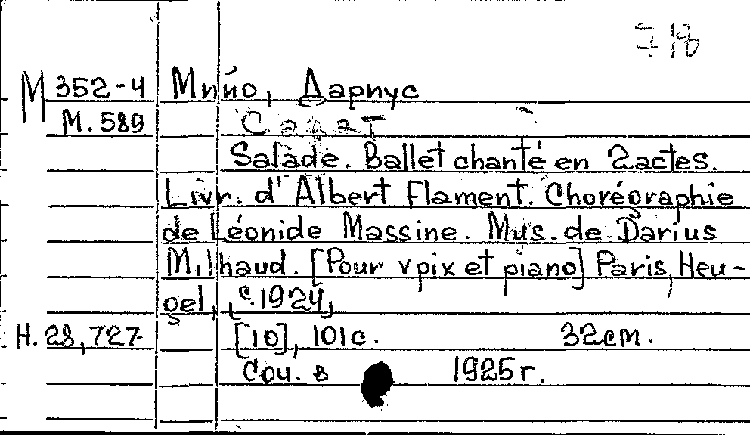 718
М 352-4 Мийо, Дариус
М. 589 Салат
Salade. Ballet chanté en 2 actes.
Livr. d'Albert Flament. Chorégraphie
de Léonide Massine. Mus. de Darius
Milhaud. [Pour voix et piano] Paris, Heu-
gel, c. 1924,
Н. 28,727 [10], 101 с. 32 см.
Соч. в 1925 г.